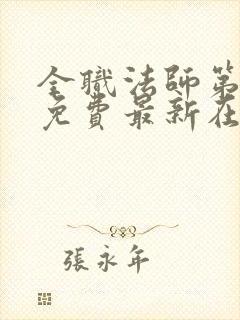 全職法師第
免費最新在
張永年